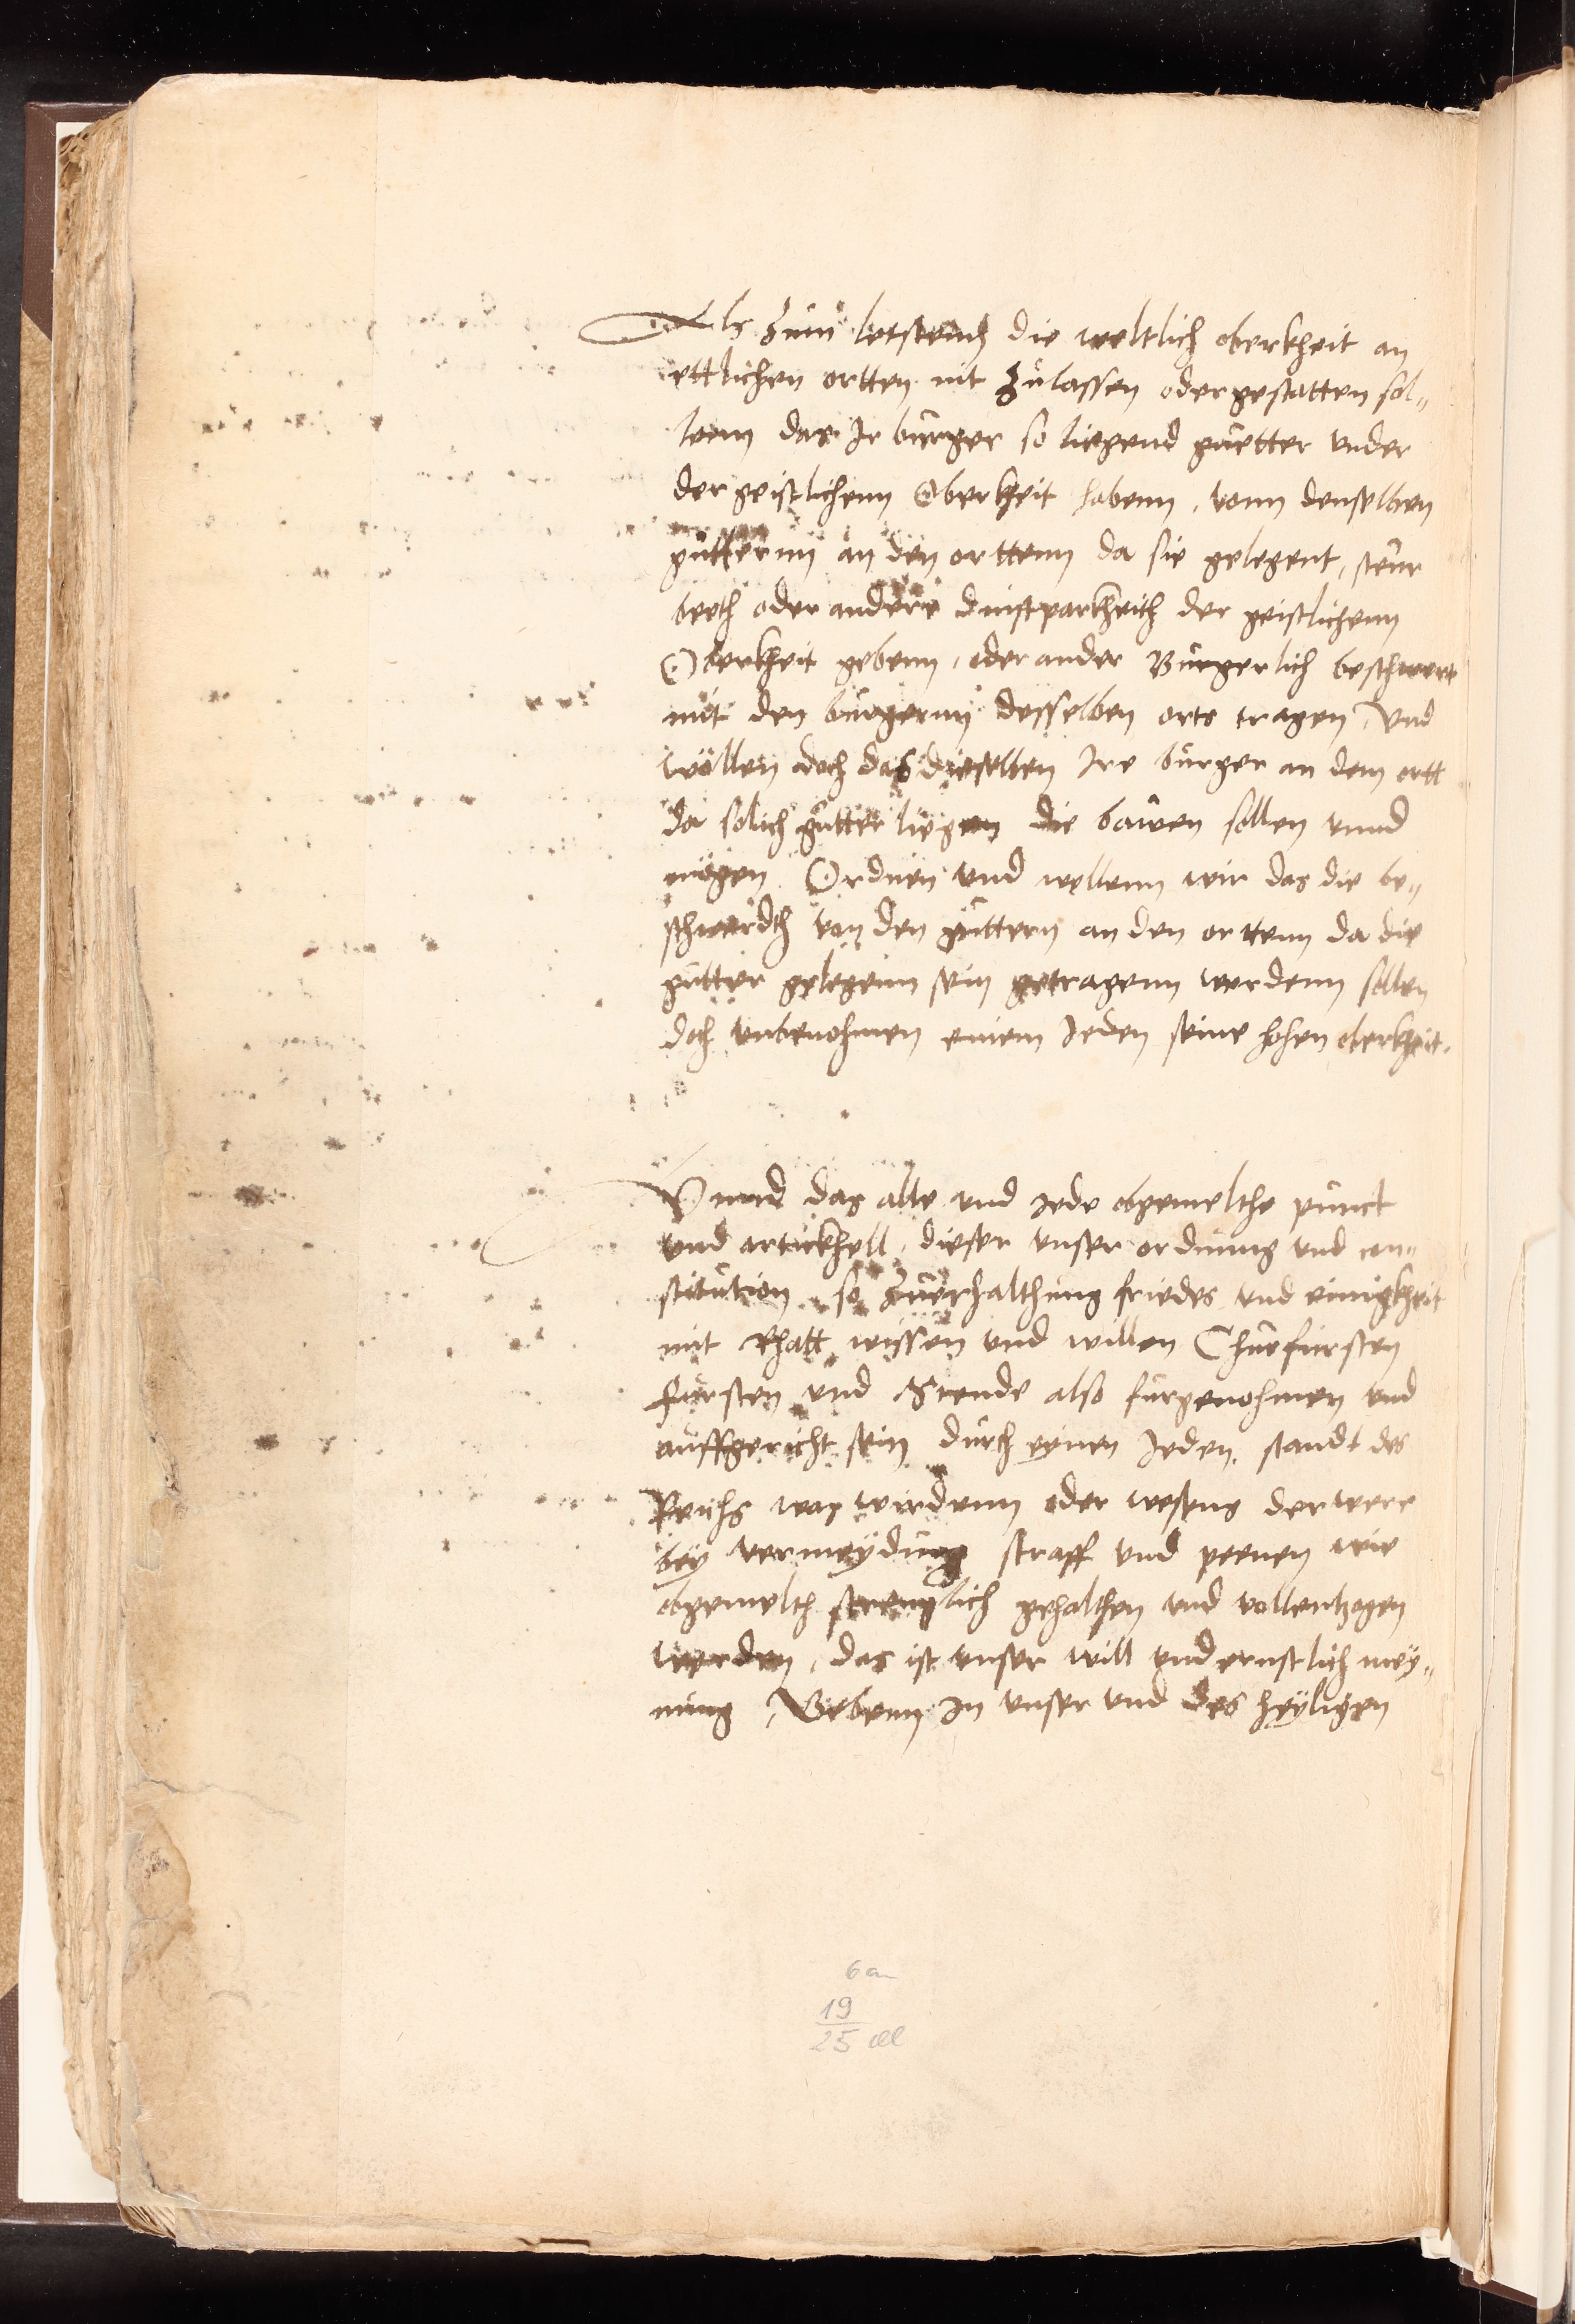 Als zum letstenn die weltlich oberkheit an
ettlichen ortten nit zulassen oder gestatten sol-
lenn das Ir burger so liegend guetter under
der geistlichenn Oberkheit habenn, vonn denselben
guttternn an den orttenn da sie gelegent, steur
beth oder andere dinstparkheith der geistlichenn
Oberkheit gebenn, oder ander Burgerlich beschwert
mit den burgernn desselben orts tragen, Und
wöllen doch das dieselben Ire burger an dem ortt
da solich gutter liegen die bawen sollen unnd
mögen Ordnen und wellenn wir das die be-
schwerdth von den guttern an den orttenn da die
gutter gelegenn sein getragenn werdenn sollen
doch unbenohmen einem Jeden seine hohen oberkheit.
Unnd das alle und jede obgemelthe punct
und artickhell, dieser unser ordnung und con-
stitution so zuerhalthung friedes und einigkheit
mit Rhatt wissen und willen Churfursten
fursten und Stende also furgenohmen und
auffgericht sein durch einen Jeden, standt des
Reichs was wirdenn oder wesens der were
bey vermeydung straff und peenen wie
obgemelth strenglich gehalthen und vollentzogen
werden, das ist unser will und ernstlich mey-
nung, Gebenn In unser und des heyligen
6 a
19
25 ell